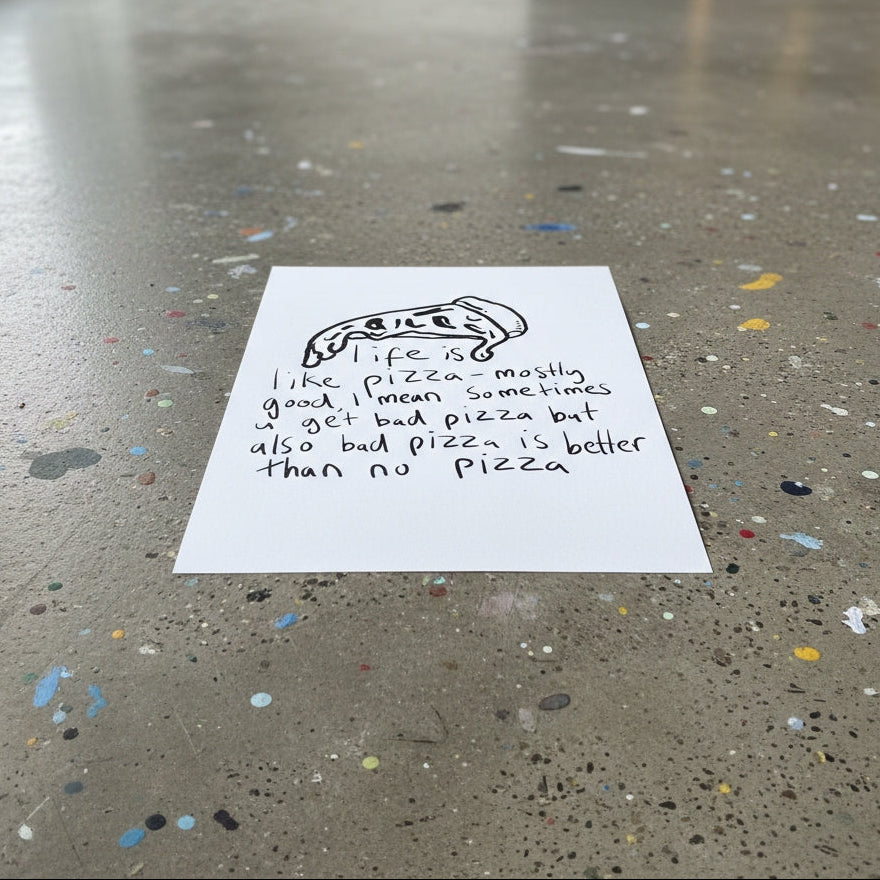 life is
like pizza - mostly
good, I mean sometimes
u get bad pizza but
also bad pizza is better
than no pizza